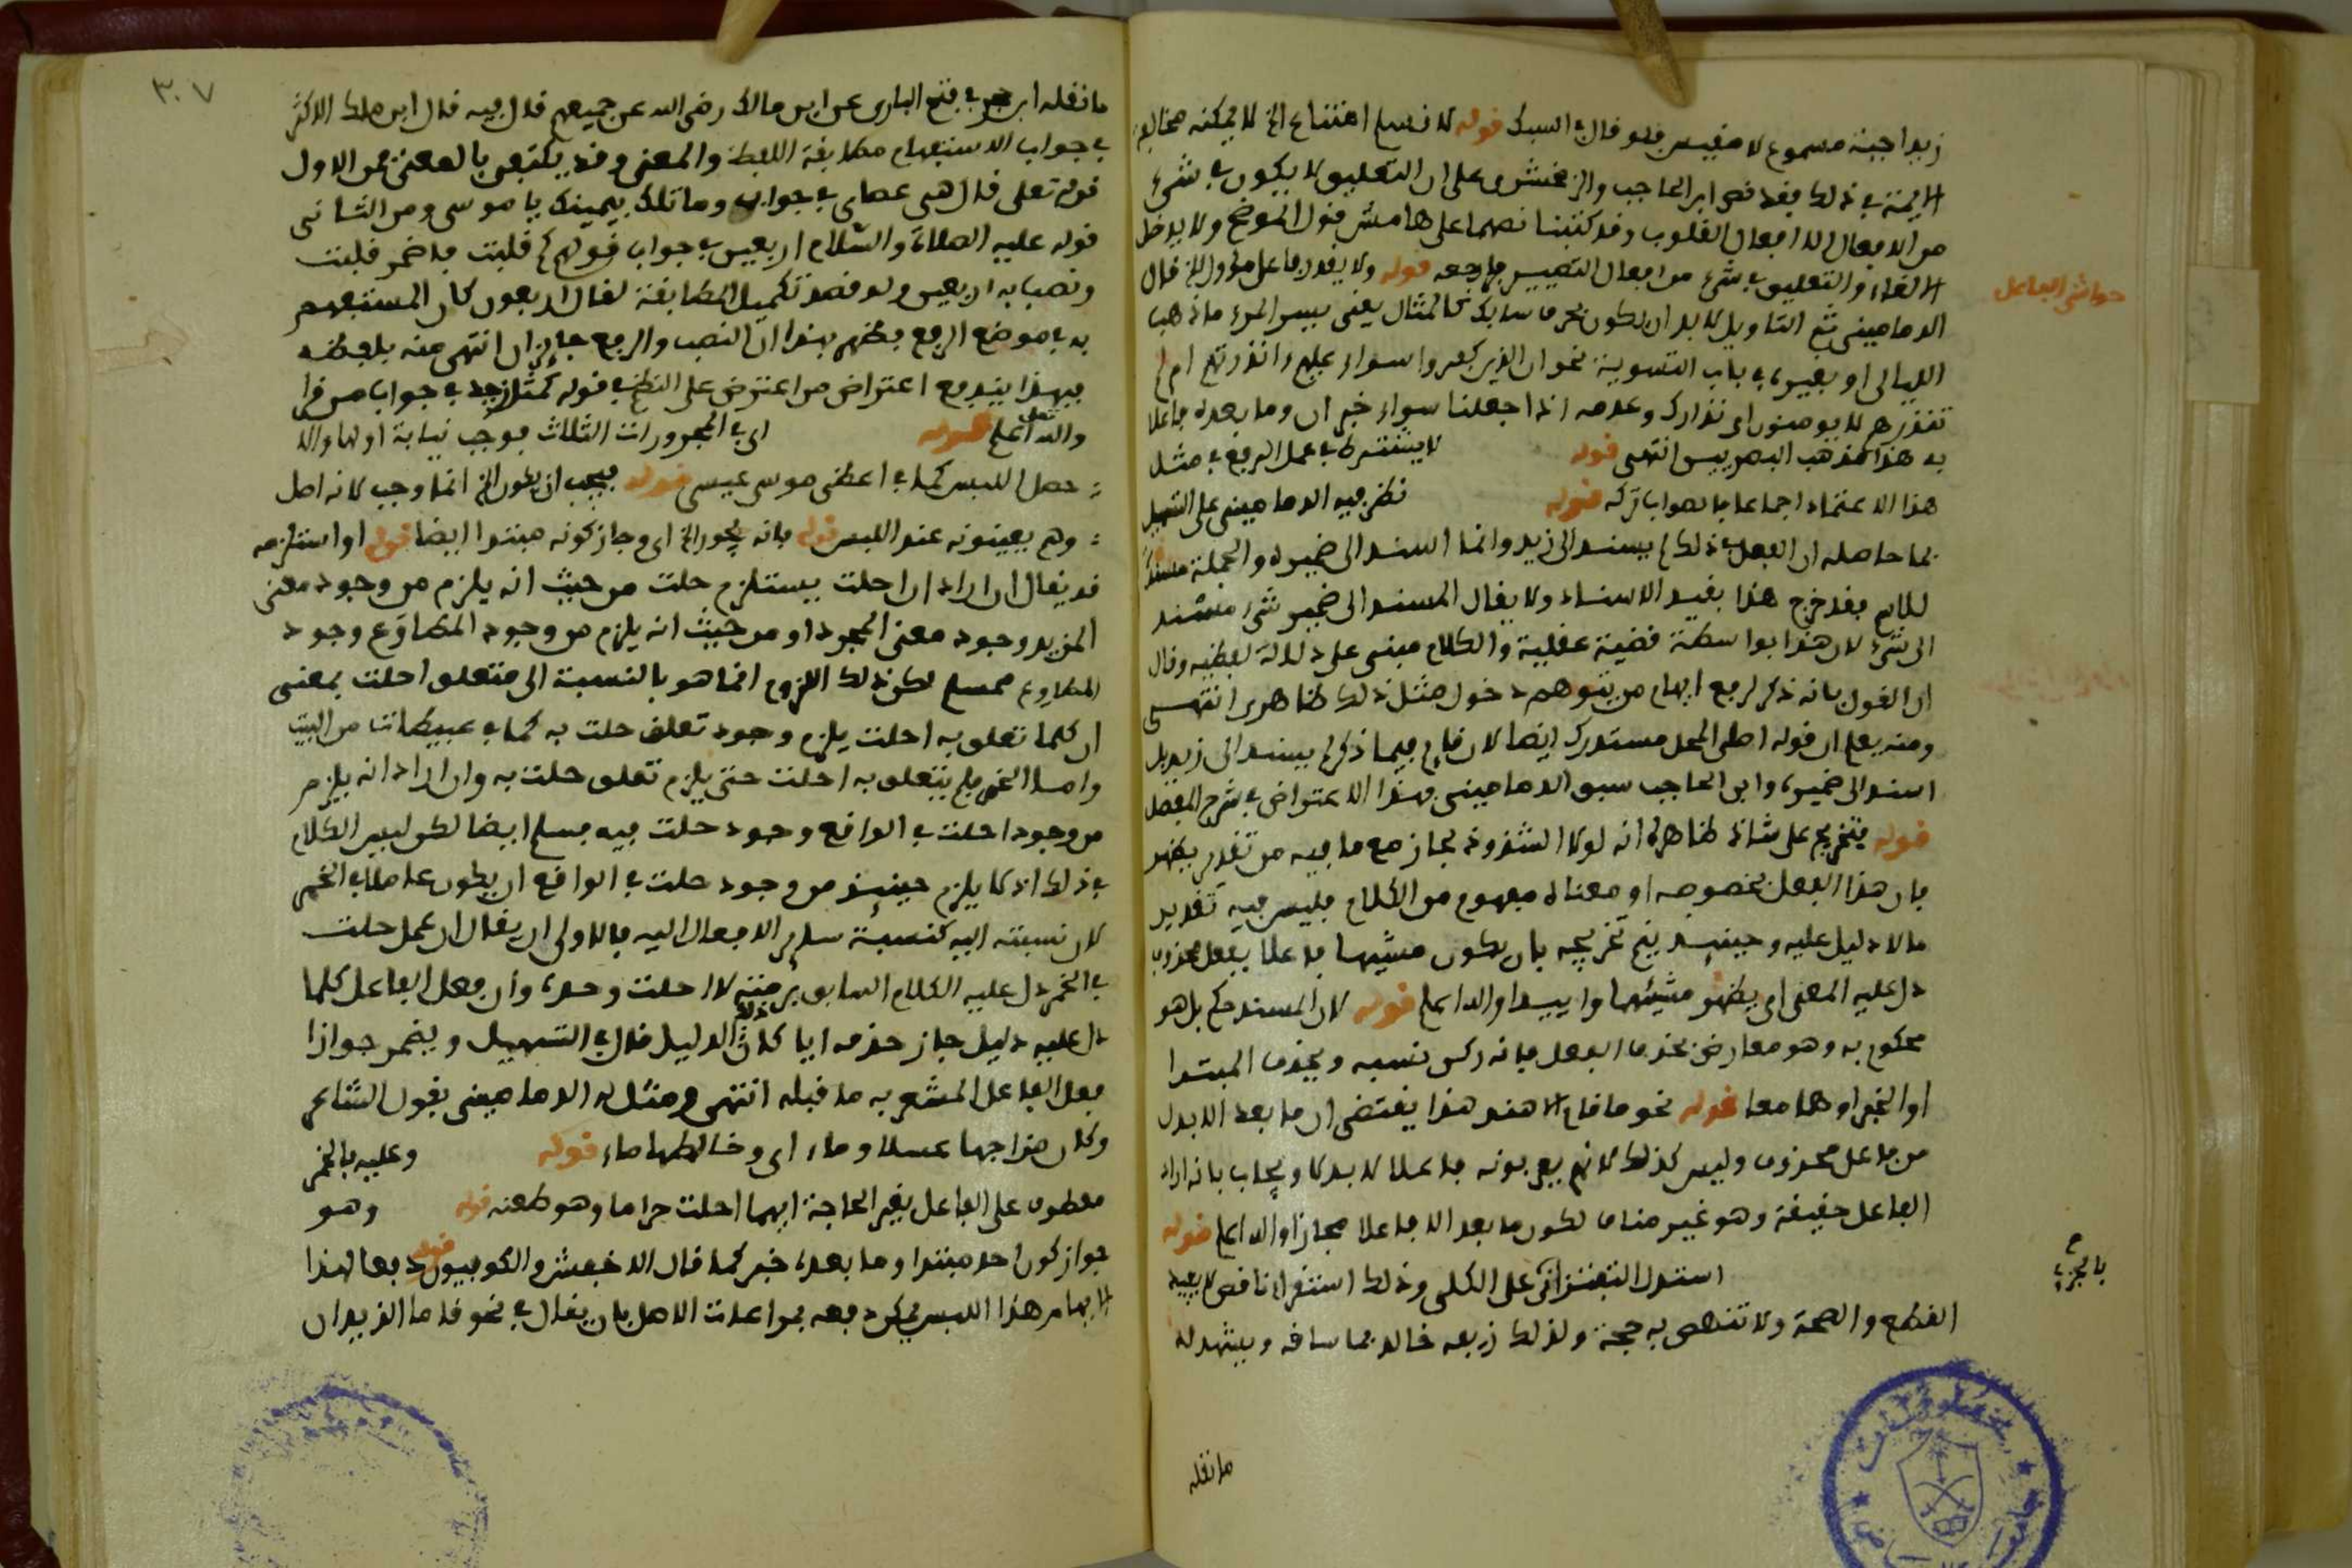 زيدا جبنه مسموع لا مقيس فلو قال في السبك قوله لا نسلم امتناع الخ لا يمكنه مخالفة
الايمة في ذلك فقد نص ابن الحاجب والزمخشري على ان التعليق لا يكون في شيء
من الافعال الا افعال القلوب وقد كتبنا نصهما على هامش قول الموضح ولا يدخل
الالغاء والتعليق في شيء من افعال التصيير فراجعه قوله ولا يقدر فاعل مؤول الخ قال
حواشي الفاعل
الدماميني ثم التاويل لا بد ان يكون بحرف سابك كالمثال يعني يسر المرء ما ذهب
الليالي او بغيره في باب التسوية نحو ان الذين كفروا سواء عليهم اانذرتهم ام لم
تنذرهم لا يومنون اي انذارك وعدمه اذا جعلنا سواء خبر ان وما بعده فاعلا
به هذا مذهب البصريين انتهى قوله لا يشترط في عمل الرفع في مثل
هذا الاعتماد اجماعا فالصواب تركه قوله نظر فيه الدماميني على التسهيل
بما حاصله ان الفعل في ذلك لم يسند الى زيد وانما اسند الى ضميره والجملة مسندة
للاسم فقد خرج هذا بقيد الاسناد ولا يقال المسند الى ضمير شيء مسند
الى شيء لان هذا بواسطة قضية عقلية والكلام مبني على دلالة لفظية وقال
ان القول بانه ذكر لرفع ابهام من يتوهم دخول مثل ذلك ظاهري انتهى
ومنه يعلم ان قوله اصلي المحل مستدرك ايضا لان قام فيما ذكر لم يسند الى زيد بل
اسند الى ضميره وابن الحاجب سبق الدماميني بهذا الاعتراض في شرح المفصل
قوله فتخريج على شاذ ظاهره انه لولا الشذوذ لجاز مع ما فيه من تقدير يظهر
فان هذا الفعل بخصوصه او معناه مفهوم من الكلام فليس فيه تقدير
ما لا دليل عليه وحينئذ يتم تخريجه بان يكون مشيها فاعلا بفعل محذوف
دل عليه المعنى اي يظهر مشيها وئيدا والله اعلم قوله لان المسند حكم بل هو
محكوم به وهو معارض بحذف الفعل فانه ركن نسبه ويحذف المبتدا
او الخبر او هما معا قوله نحو ما قام الا هند هذا يقتضي ان ما بعد الا بدل
من فاعل محذوف وليس كذلك لانهم يعربونه فاعلا لا بدلا ويجاب بانه اراد
الفاعل حقيقة وهو غير مناف لكون ما بعد الا فاعلا مجازا والله اعلم قوله
استدل التفتزاني على الكلي وذلك استقراء ناقص لا يفيد
بالجزءي
القطع والصحة ولا تنتهض به حجة ولذلك زيفه خالد بما ساقه ويشهد له
ما نقله
٣٠٧
ما نقله ابن حجر في فتح الباري عن ابن مالك رضي الله عن جميعهم قال فيه قال ابن ملك الاكثر
في جواب الاستفهام مطابقة اللفظ والمعنى وقد يكتفى بالمعنى فمن الاول
قوله تعلى قال هي عصاي في جواب وما تلك بيمينك يا موسى ومن الثاني
قوله عليه الصلاة والسلام اربعين في جواب قولهم كم فلبث فاضمر فلبث
ونصب به اربعين ولو قصد تكميل المطابقة لقال اربعون لان المستفهم
به في موضع الرفع فظهر بهذا ان النصب والرفع جايزان انتهى منه بلفظه
فبهذا يندفع اعتراض من اعترض على النظم في قوله كمثل زيد في جواب من قرا
والله تعلى اعلم قوله اي في المجرورات الثلاث فوجب نيابة اولها والا
حصل اللبس كما في اعطى موسى عيسى قوله فيجب ان يكون الخ انما وجب لانه اصل
وهم يعينونه عند اللبس قوله فانه يجوز الخ اي وجاز كونه مبتدا ايضا قوله او استلزمه
قد يقال ان اراد ان احلت يستلزم حلت من حيث انه يلزم من وجود معنى
المزيد وجود معنى المجرد او من حيث انه يلزم من وجود المطاوَع وجود
المطاوِع فمسلم لكن ذلك اللزوم انما هو بالنسبة الى متعلق احلت بمعنى
ان كلما تعلق به احلت يلزم وجود تعلق حلت به كما في عبيطات من البيت
واما الخمر فلم يتعلق به احلت حتى يلزم تعلق حلت به وان اراد انه يلزم
من وجود احلت في الواقع وجود حلت فيه فمسلم ايضا لكن ليس الكلام
في ذلك اذ لا يلزم حينئذ من وجود حلت في الواقع ان يكون عاملا في الخمر
لان نسبته اليه كنسبة ساير الافعال اليه فالاولى ان يقال ان عمل حلت
في الخمر دل عليه الكلام السابق برمته لا احلت وحده وان فعل الفاعل كلما
دل عليه دليل جاز حذفه ايا كان ذلك الدليل قال في التسهيل ويضمر جوازا
فعل الفاعل المشعر به ما قبله انتهى ومثل له الدماميني بقول الشاعر
وكان مزاجها عسلا وماء اي وخالطها ماء قوله وعليه فالخمر
معطوف على الفاعل بغير الحاجة ايهما احلت حراما وهو طعنه قوله وهو
جواز كون احد مبتدا وما بعده خبر كما قال الاخفش والكوفيون قوله دفعا لهذا
الابهام هذا اللبس يمكن دفعه بمراعات الاصل بان يقال في نحو قاما الزيدان